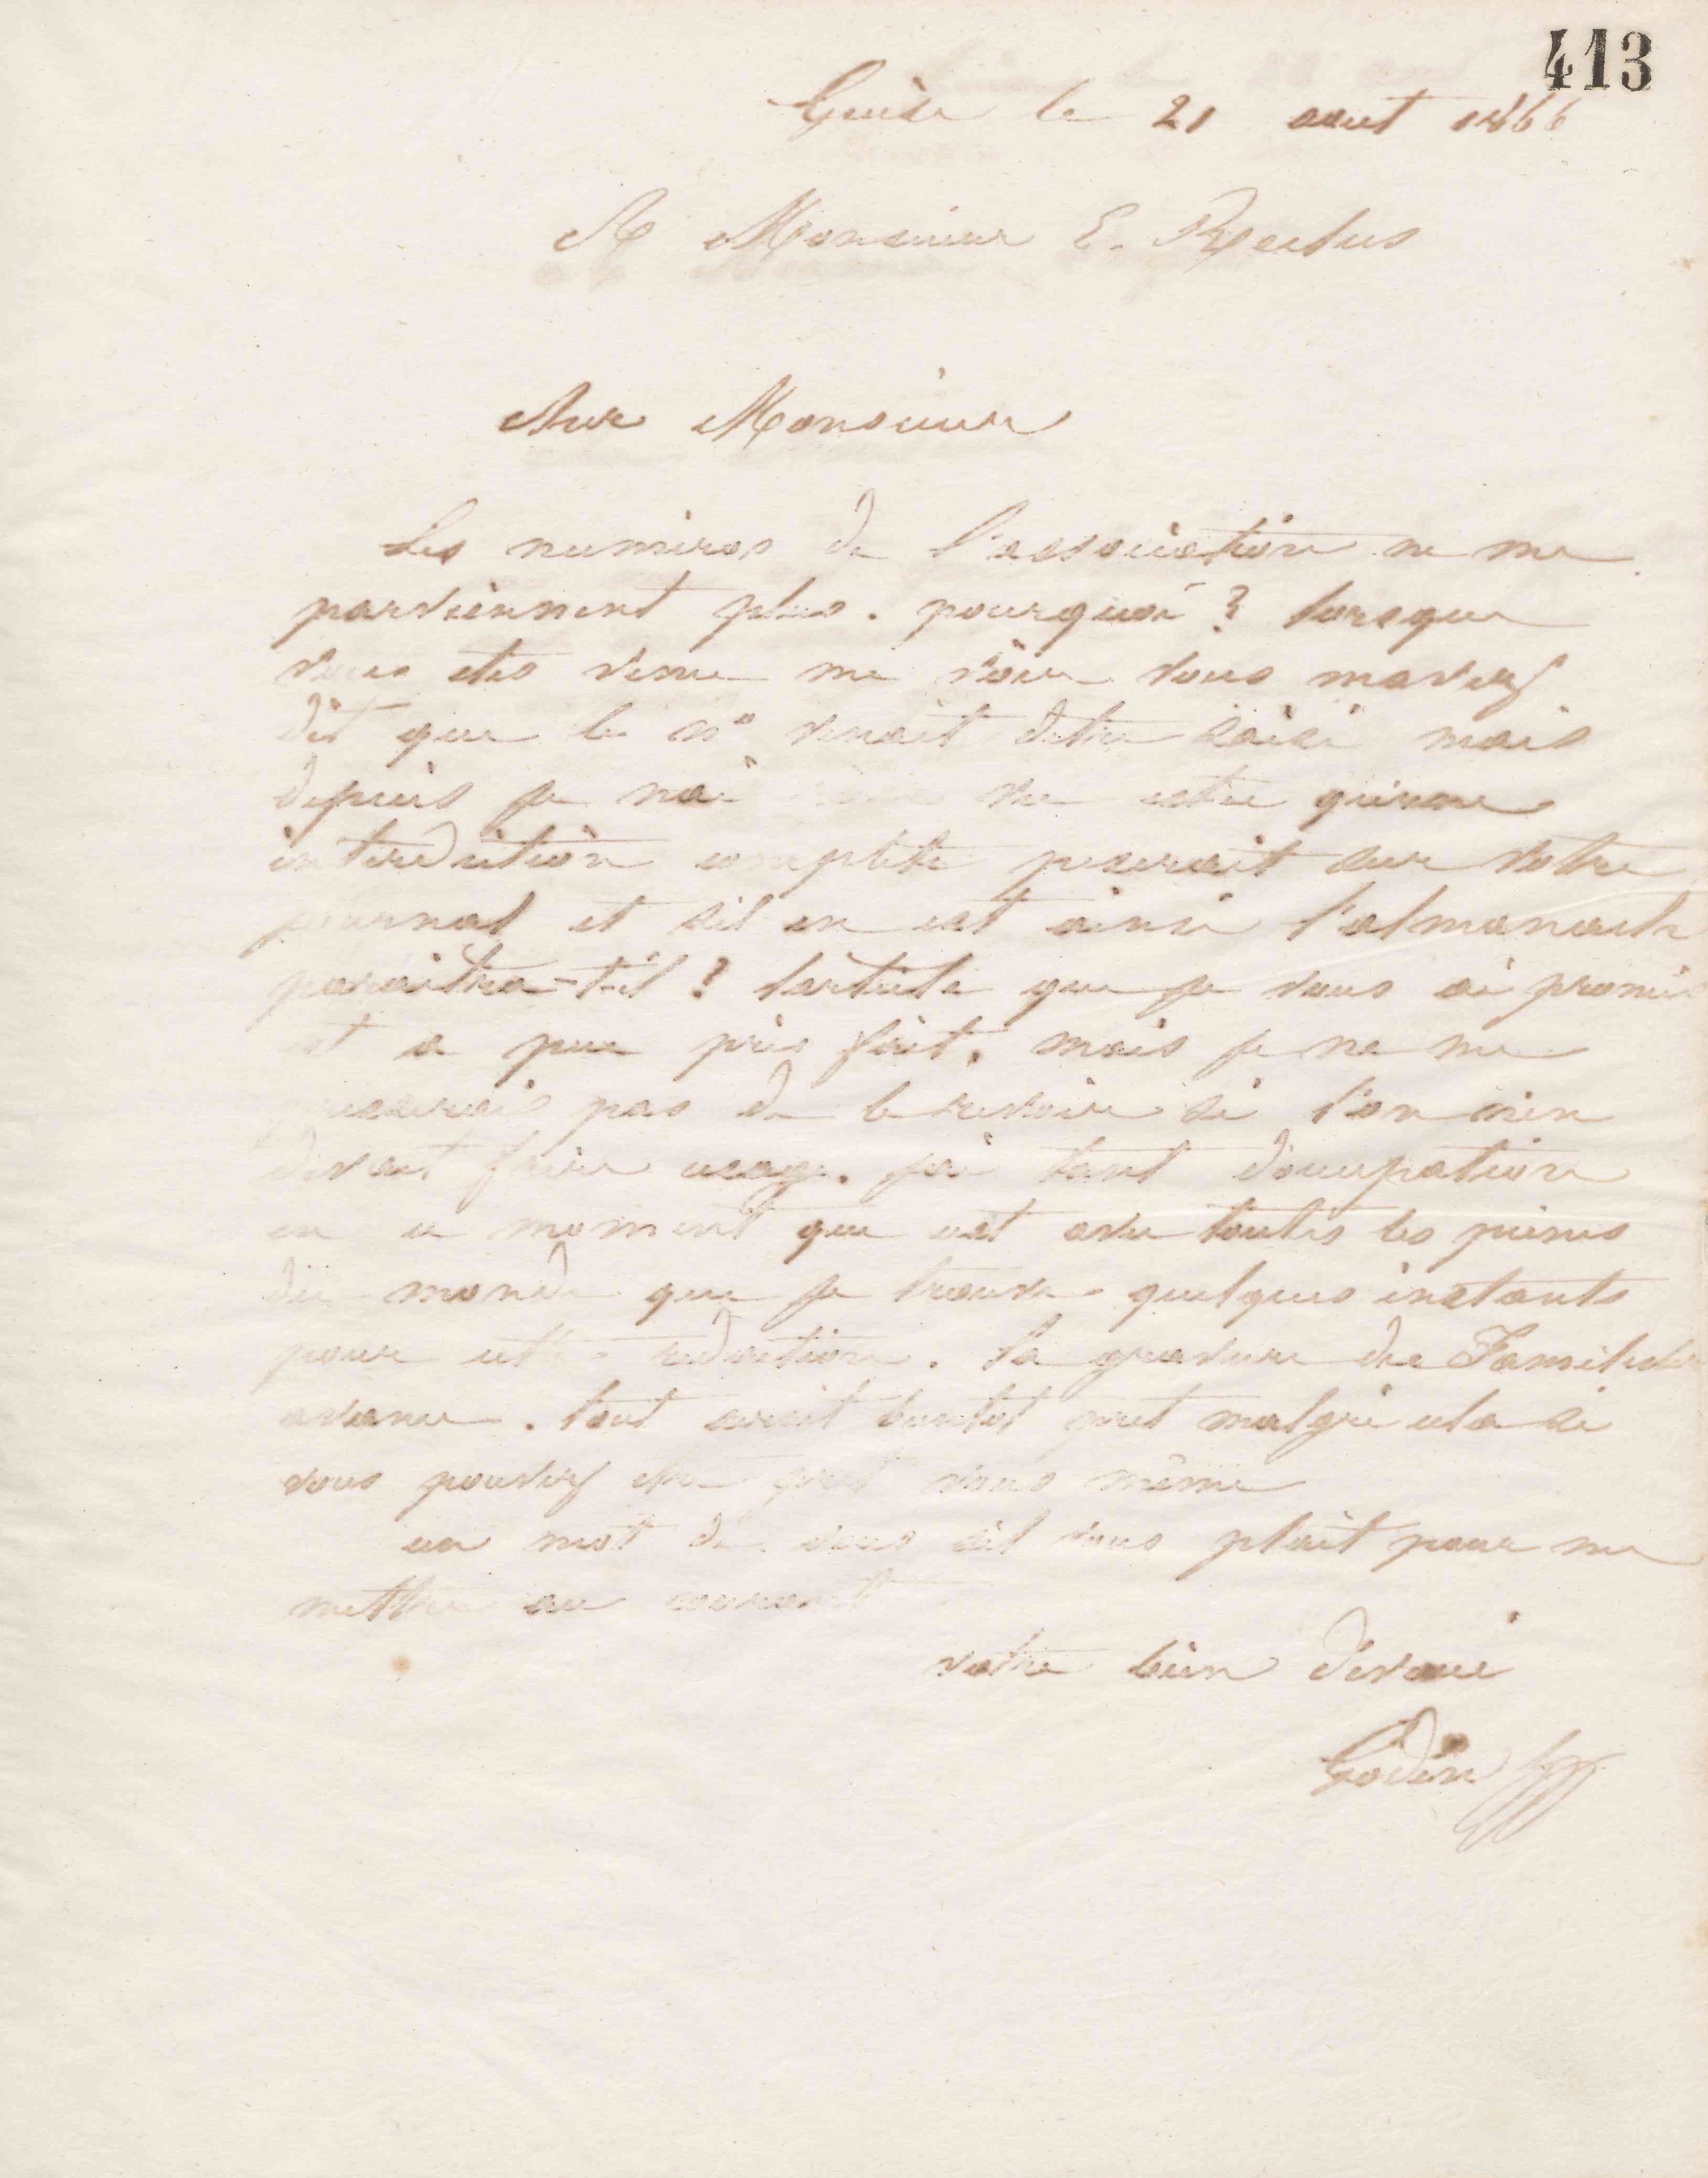 413
Guise le 21 aout 1866
A Monsieur E. Reclus
Cher Monsieur
Les numeros de l'association ne me
parviennent plus. pourquoi ? lorsque
vous etes venu me voir vous mavez
dit que le no venait detre saisi mais
depuis je nai vu
interdiction complète peserait sur votre
journal et sil en est ainsi l'almanach
paraitra-t-il ? larticle que je vous ai promis
est a peu près fait, mais je ne me
presserais pas de le revoir si l'on nen
devait faire usage. jai tant d'occupation
en ce moment que cest avec toutes les peines
du monde que je trouve quelques instants
pour cette redaction. la gravure du Familistère
avance. tout serait bientot pret malgré cela si
vous pouvez etre pret vous même
un mot de vous sil vous plait pour me
mettre au courant
votre bien devoué
Godin